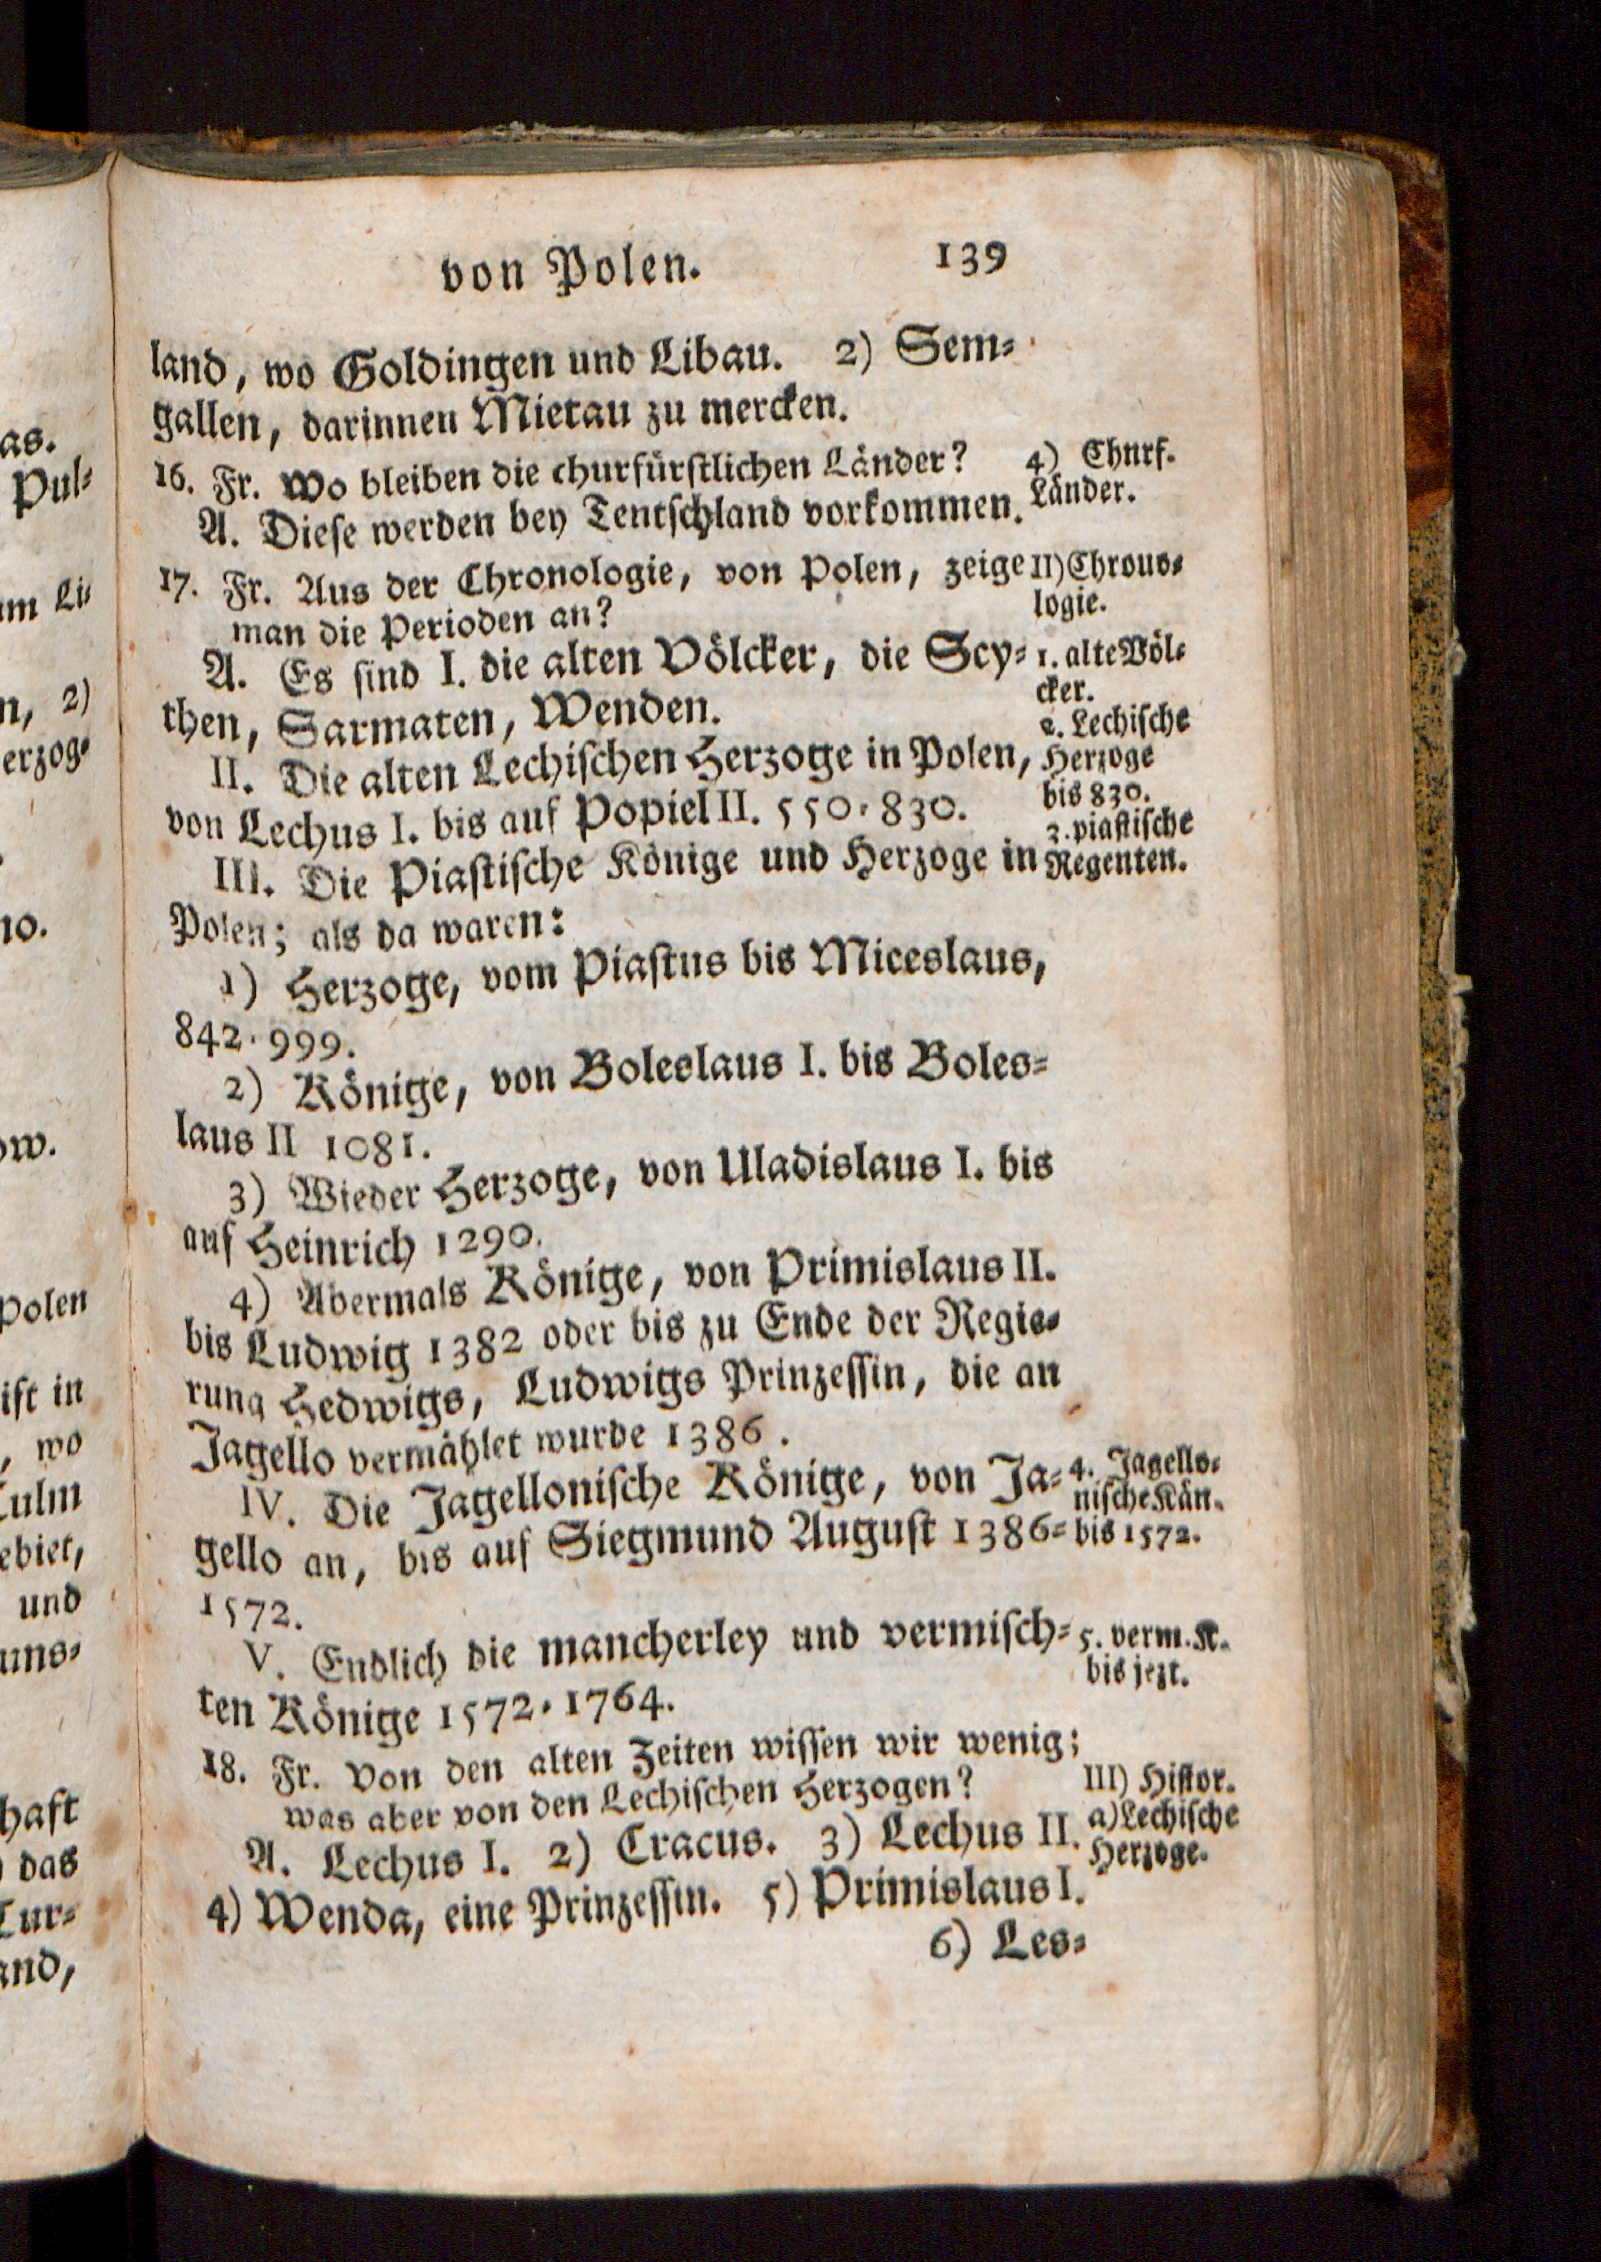 von Polen. 139
land, wo Goldingen und Libau. 2) Sem-
gallen, darinnen Mietau zu mercken.
16. Fr. Wo bleiben die churfürstlichen Länder?
A. Diese werden bey Tentschland vorkommen.
4) Chnrf.
Länder.
17. Fr. Aus der Chronologie, von Polen, zeige
man die Perioden an?
II) Chrono-
logie.
A. Es sind I. die alten Völcker, die Scy-
then, Sarmaten, Wenden.
1. alte Völ-
cker.
II. Die alten Lechischen Herzoge in Polen,
von Lechus I. bis auf Popiel II. 550-830.
2. Lechische
Herzoge
bis 830.
III. Die Piastische Könige und Herzoge in
Polen; als da waren:
3. piastische
Regenten.
1) Herzoge, vom Piastus bis Miceslaus,
842-999.
2) Könige, von Boleslaus I. bis Boles-
laus II 1081.
3) Wieder Herzoge, von Uladislaus I. bis
auf Heinrich 1290.
4) Abermals Könige, von Primislaus II.
bis Ludwig 1382 oder bis zu Ende der Regie-
rung Hedwigs, Ludwigs Prinzessin, die an
Jagello vermählet wurde 1386.
IV. Die Jagellonische Könige, von Ja-
gello an, bis auf Siegmund August 1386-
1572.
4. Jagello-
nische Kön.
bis 1572.
V. Endlich die mancherley und vermisch-
ten Könige 1572-1764.
5. verm. K.
bis jezt.
18. Fr. Von den alten Zeiten wissen wir wenig;
was aber von den Lechischen Herzogen?
A. Lechus I. 2) Cracus. 3) Lechus II.
4) Wenda, eine Prinzessin. 5) Primislaus I.
III) Histor.
a) Lechische
Herzoge.
6) Les-
as.
Pul-
um Li-
n, 2)
erzog-
no.
ow.
Polen
ist in
, wo
Culm
ebiet,
und
uns-
haft
das
Cur-
and,